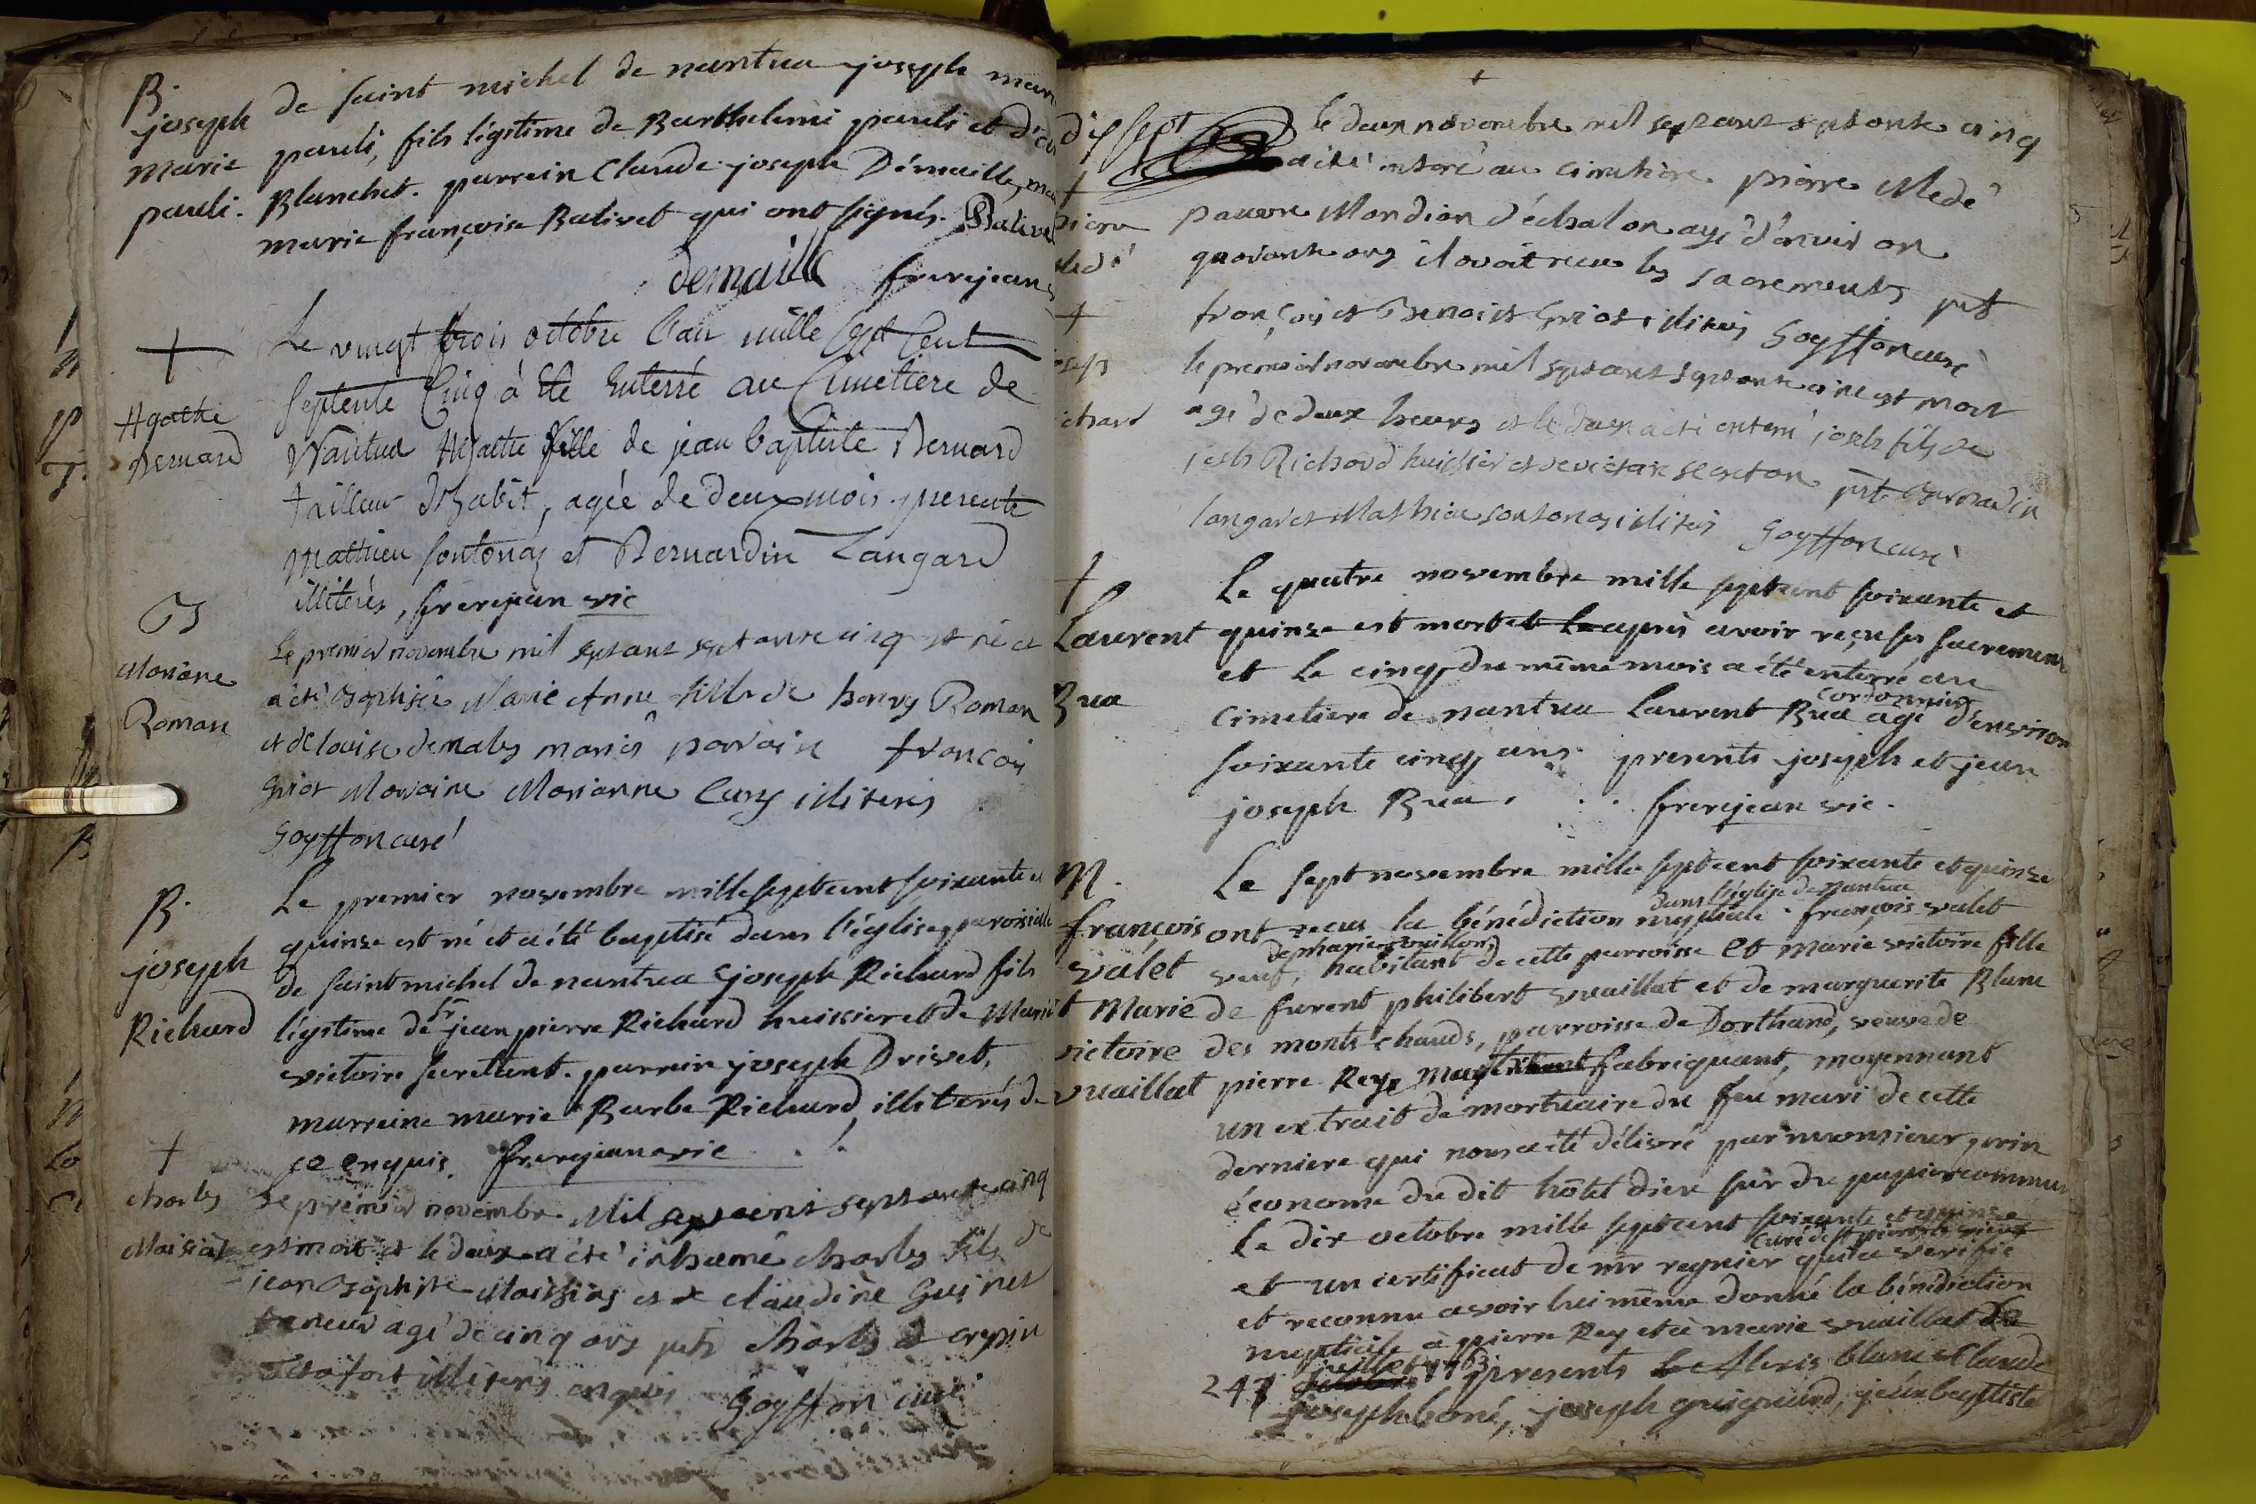 B.
joseph
marie
pauli.
de saint michel de nantua joseph mari
pauli, fils légitime de Barthelemi pauli et d'
Blanchet. parrein Claude-joseph Démaille,
marie françoise Balivet qui ont signés. Balivet
demaille frerejean
+
Agathe
Bernard
Le vingt trois octobre l'an mille sept cent
septente Cinq à été Enterré au Cimetiere de
Nantua Agathe fille de jean baptiste Bernard
tailleur d'habit, agée de deux mois. presents
Mathieu sontonas et Bernardin Langard
illiterés, frerejean vic
B
Mariane
Roman
Le premier novembre mil septcent septante cinq est né et
a été Baptisée Marie Anne fille de henry Roman
et de louise demales mariés parrain françois
Griot Marraine Marianne Cury illiterés
Goyffon curé
B.
joseph
Richard
Le premier novembre mille septcent soixante et
quinze est né et a été baptisé dans l'église paroissielle
de saint michel de nantua joseph Richard fils
légitime de sr jean pierre Richard huissier et de Marie
victoire secrettant. parrein joseph Drivet,
marreine marie Barbe Richard, illiterés de
ce enquis. frerejean vic
+
charles
Maissiat
Le premier novembre Mil septcent septante cinq
est mort et le deux a été inhumé charles fils de
jean Baptiste Maissiat et de claudine Guinet
taneur agé de cinq ans pnts charles et crepin
illiterés enquis Goyffon curé
+
dixsept
+
pierre
Medé
le deux novembre mil septcent septante cinq
a été enterré au cimetière pierre Medé
pauvre Mendian d'échalon agé d'environ
quarante ans il avoit receu les sacrements pnts
françois et Benoist Griot illiterés Goyffon curé
+
joseph
richard
le premier novembre mil septcent septante cinc est mort
agé de deux heures et le deux a été enterré joseph fils de
joseph Richard huissier et de victoire secretan pnts Bernardin
langard et Mathieu sontonas illiterés Goyffon curé
+
Laurent
Brea
Le quatre novembre mille septcent soixante et
quinze est mort et le après avoir reçu ses sacremens
et le cinq du même mois a été enterré au
cordonnier
cimetiere de nantua laurent Brea agé d'environ
soixante cinq ans. presents joseph et jean
joseph Brea. frerejean vic.
M.
françois
valet
et Marie
victoire
vuaillat
Le sept novembre mille septcent soixante et quinze
dans l'église de nantua
ont reçus la bénédiction nuptiale. françois valet
de marie
veuf, habitant de cette parroisse et marie victoire fille
de furent philibert vuaillat et de marguerite Blanc
des monts chauds, parroisse de Dorthand, veuve de
pierre Rey fabriquant, moyennant
un extrait de mortuaire du feu mari de cette
derniere qui nous a été délivré par monsieur perin
économe du dit hôtel dieu sur du papier commun
Le dix octobre mille septcent soixante et quinze
curé de st pierre le vieux
et un certificat de mr regnier qui a verifié
et reconnu avoir lui même donné la bénédiction
nuptiale à pierre Rey et à marie vuaillat
juillet 1763
247 presents Alexis blanc Claude
joseph boné, joseph guigniard, jean baptiste